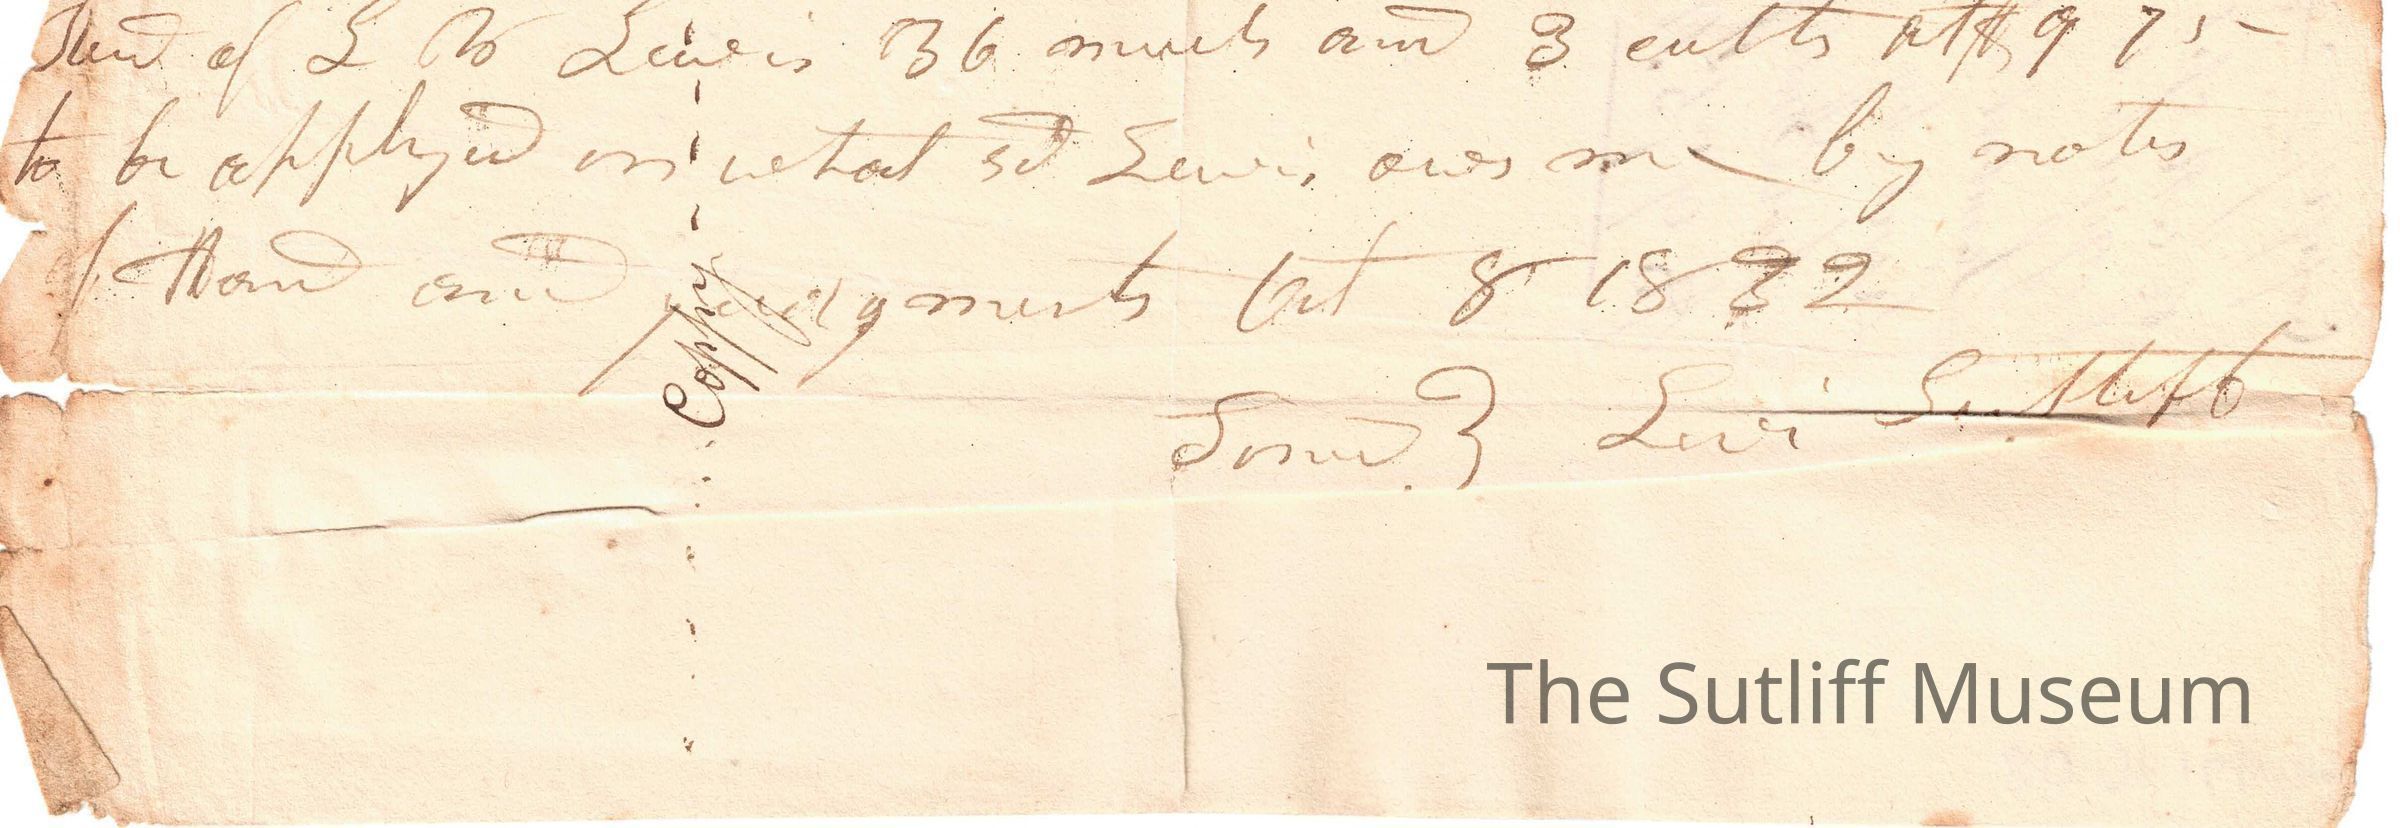 of L W Lewis 36 and 3 at $9 75
to be applyed on what sd Lewis owes me by notes
of Hand and judgments Oct 8 1832
Coppy
Levi Sutliff
The Sutliff Museum